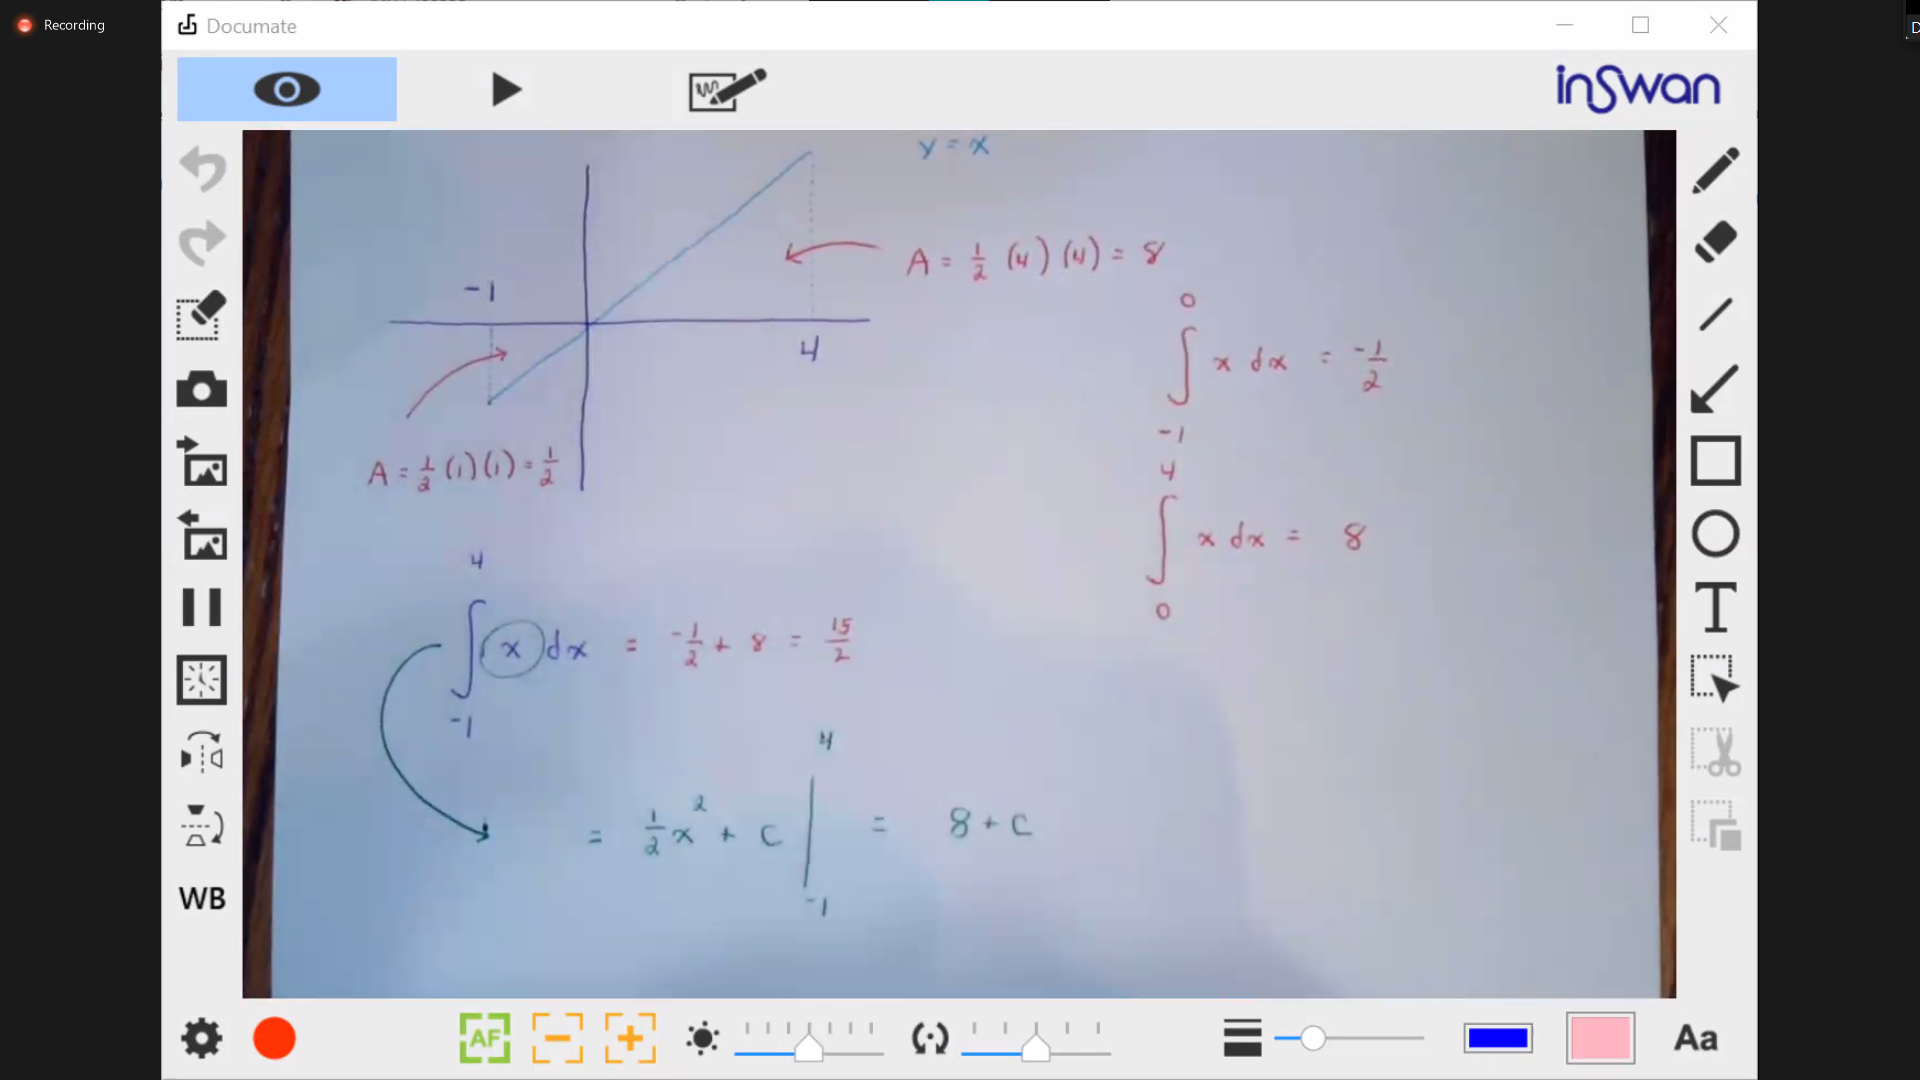 Recording
Documate
inSwan
y = x
A = 1/2 (4) (4) = 8
-1
4
A = 1/2 (1) (1) = 1/2
∫_{-1}^{0} x dx = -1/2
∫_{0}^{4} x dx = 8
∫_{-1}^{4} x dx = -1/2 + 8 = 15/2
= 1/2 x^2 + C |_{-1}^{4} = 8 + C
WB
T
AF
Aa
D